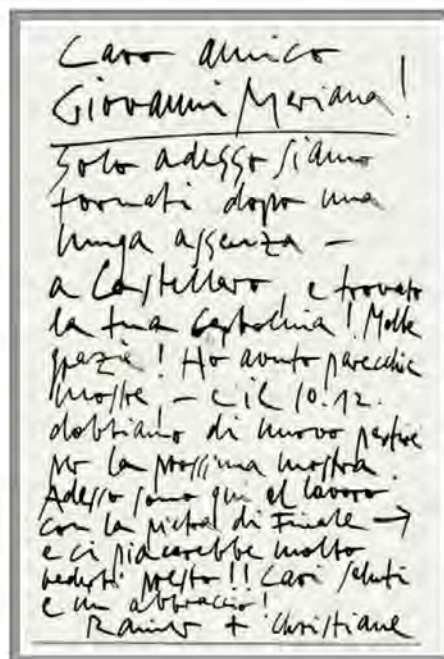 Caro amico
Giovanni Meriana!
Solo adesso siamo
tornati dopo una
lunga assenza –
a Castellaro, e trovato
la tua cartolina! Molte
grazie! Ho avuto parecchie
mostre, – e il 10.12.
dobbiamo di nuovo partire
per la prossima mostra.
Adesso sono qui al lavoro
con la pietra di Finale →
e ci piacerebbe molto
vederti presto!! Cari saluti
e un abbraccio!
Rainer + Christiane